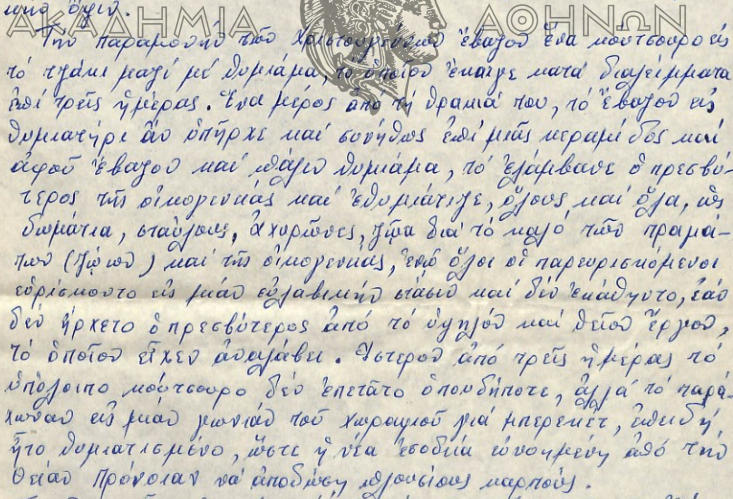 ΑΚΑΔΗΜΙΑ ΑΘΗΝΩΝ
Τήν παραμονήν τῶν Χριστουγέννων ἔβαζον ἕνα κούτσουρο εἰς
τό τζάκι μαζί μέ θυμίαμα, τό ὁποῖον ἔκαιγε κατά διαλείμματα
ἐπί τρεῖς ἡμέρας. Ἕνα μέρος ἀπό τή θρακιά του, τό ἔβαζον εἰς
θυμιατήρι ἄν ὑπῆρχε καί συνήθως ἐπί μιᾶς κεραμίδος καί
ἀφοῦ ἔβαζον καί πάλιν θυμίαμα, τό ἐλάμβανε ὁ πρεσβύ-
τερος τῆς οἰκογενείας καί ἐθυμιάτιζε, ὅλους καί ὅλα,
δωμάτια, σταύλους, ἀχυρῶνες, ζῶα διά τό καλό τῶν πραμά-
των (ζώων) καί τῆς οἰκογενείας, ἐνῶ ὅλοι οἱ παρευρισκόμενοι
εὑρίσκοντο εἰς μίαν εὐλαβικήν στάσιν καί δέν ἐκάθηντο, ἐάν
δέν ἤρχετο ὁ πρεσβύτερος ἀπό τό ὑψηλόν καί θεῖον ἔργον,
τό ὁποῖον εἶχεν ἀναλάβει. Ὕστερον ἀπό τρεῖς ἡμέρας τό
ὑπόλοιπο κούτσουρο δέν ἐπετᾶτο ὁπουδήποτε, ἀλλά τό παρά-
χωναν εἰς μίαν γωνιάν τοῦ χωραφιοῦ γιά μπερεκέτ, ἐπειδή
ἦτο θυμιατισμένο, ὥστε ἡ νέα ἐσοδεία εὐνοημένη ἀπό τήν
Θείαν Πρόνοιαν νά ἀποδώσῃ πλουσίους καρπούς.